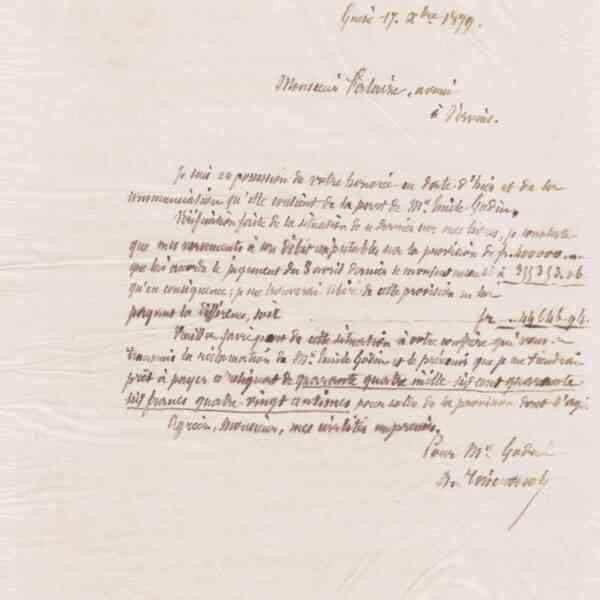 Guise 17 Xbre 1879.
Monsieur Pelaire, avoué
à Vervins.
Je suis en possession de votre honorée en date d'hier et de la
communication qu'elle contient de la part de Mr. Emile Godin.
Vérification faite de la situation de ce dernier sur mes livres, je constate
que mes versements à son débit imputables sur la provision de fr. 400000.
que lui accorda le jugement du 3 avril dernier se montent à 355353.06
qu'en conséquence, je me trouverai libéré de cette provision en lui
payant la différence, soit fr. 44646.94
Veuillez faire part de cette situation à votre confrère qui vous
transmis la réclamation de Mr. Emile Godin et le prévenir que je me tiendrai
prêt à payer ce reliquat de quarante quatre mille six cent quarante
six francs quatre vingt centimes pour solde de la provision dont s'agit
Agréez, Monsieur, mes civilités empressées.
Pour Mr. Godin